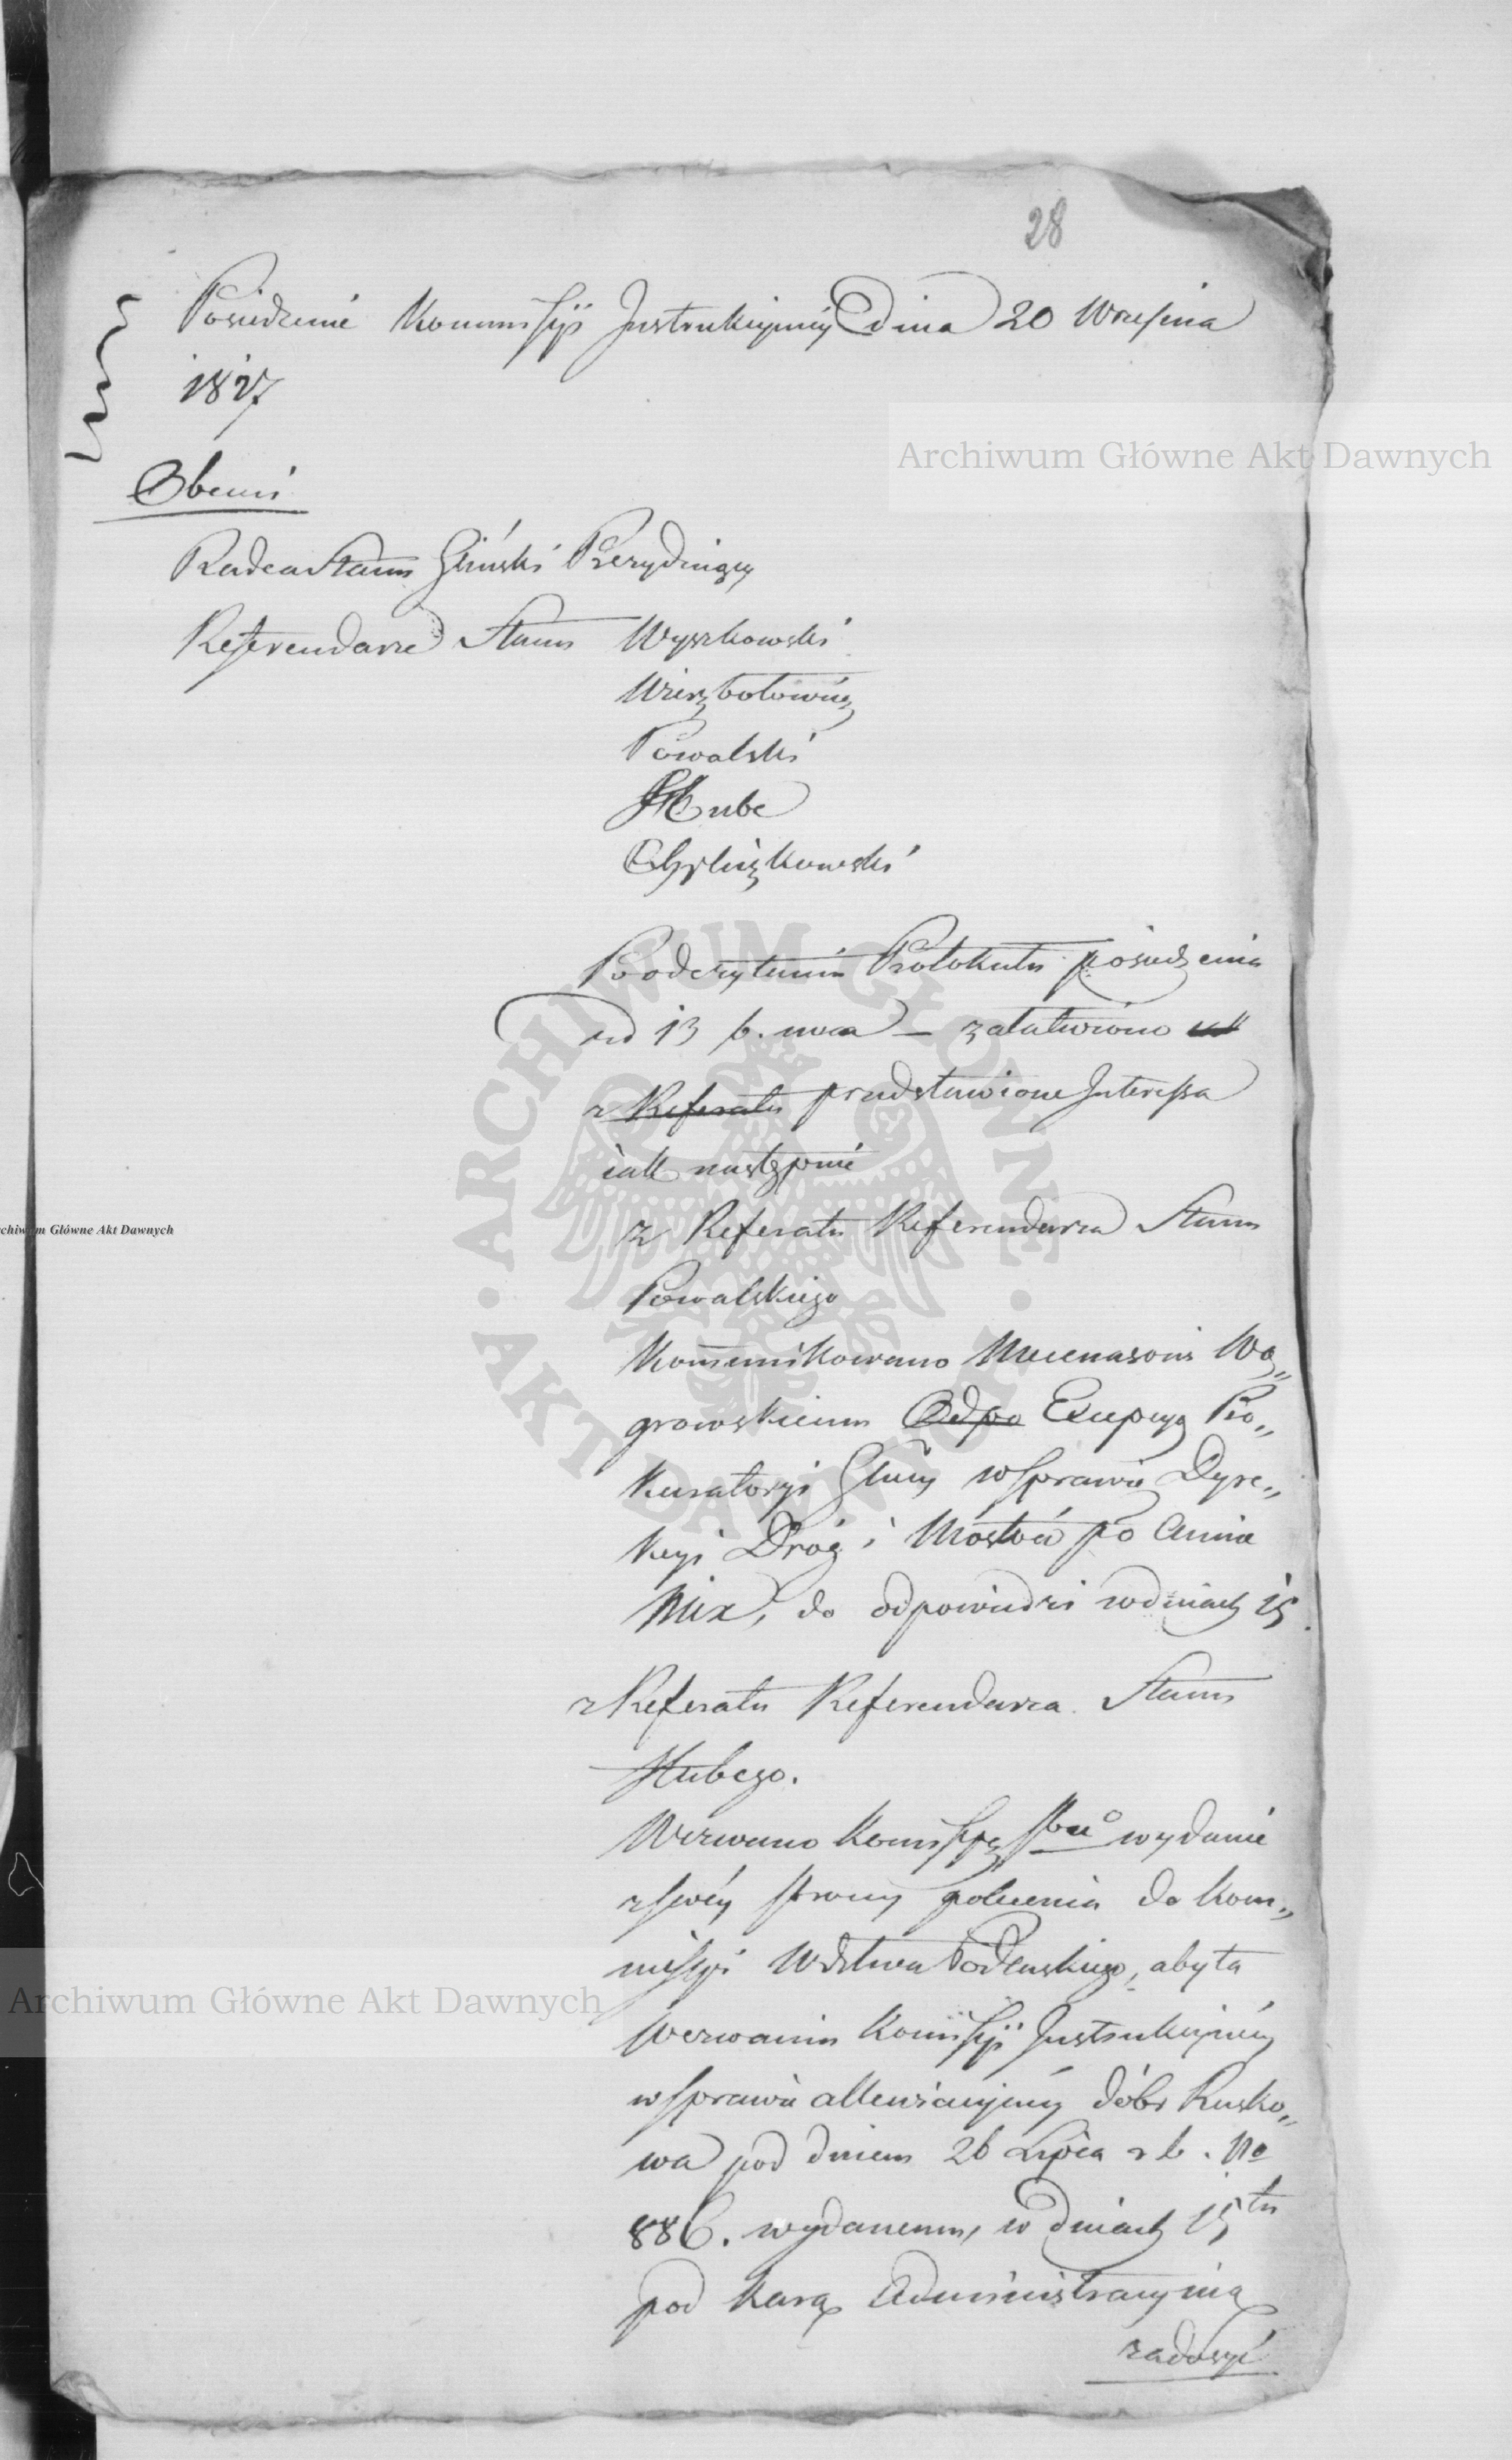 28
Posiedzenie Kommissyi Instrukcyiney dnia 20 Września
1827
Obecni
Radca Stanu Gliński Prezyduiący
Referendarze Stanu Wyszkowski
Wierzbołowicz
Powalski
Hube
Chyliczkowski
Po odczytaniu Protokułu posiedzenia
od 13 b. mca – załatwiono
z Referatu przedstawione Interessa
iak następnie
z Referatu Referendarza Stanu
Powalskiego
Kommunikowano Mecenasowi Wą„
growskiemu Odpo Excepcyą Pro„
kuratoryi Glney w sprawie Dyre„
kcyi Dróg i Mostów po Annie
Mix, do odpowiedzi w dniach 15.
z Referatu Referendarza Stanu
Hubego.
Wezwano Komissyą wydanie
z swéy strony polecenia do Kom„
missyi Wdztwa Podlaskiego, aby ta
wezwaniu Komissyi Instrukcyinéy
w sprawie allewiacyinéy dóbr Rusko„
wa pod dniem 26 Lipca r b. No
886. wydanemu, w dniach 15tu
pod karą Administracyiną
zadosyć
Archiwum Główne Akt Dawnych
Archiwum Główne Akt Dawnych
chiwum Główne Akt Dawnych
ARCHIWUM GŁÓWNE
AKT DAWNYCH